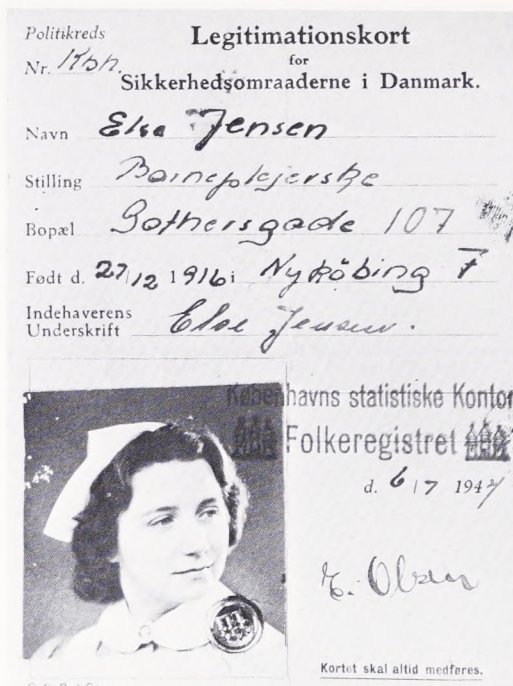 Politikreds
Nr. Kbh.
Legitimationskort
for
Sikkerhedsomraaderne i Danmark.
Navn Else Jensen
Stilling Barneplejerske
Bopæl Gothersgade 107
Født d. 27/12 1916 i Nykøbing F
Indehaverens
Underskrift Else Jensen.
Københavns statistiske Kontor
Folkeregistret
d. 6/7 1944
E. Olsen
Kortet skal altid medføres.